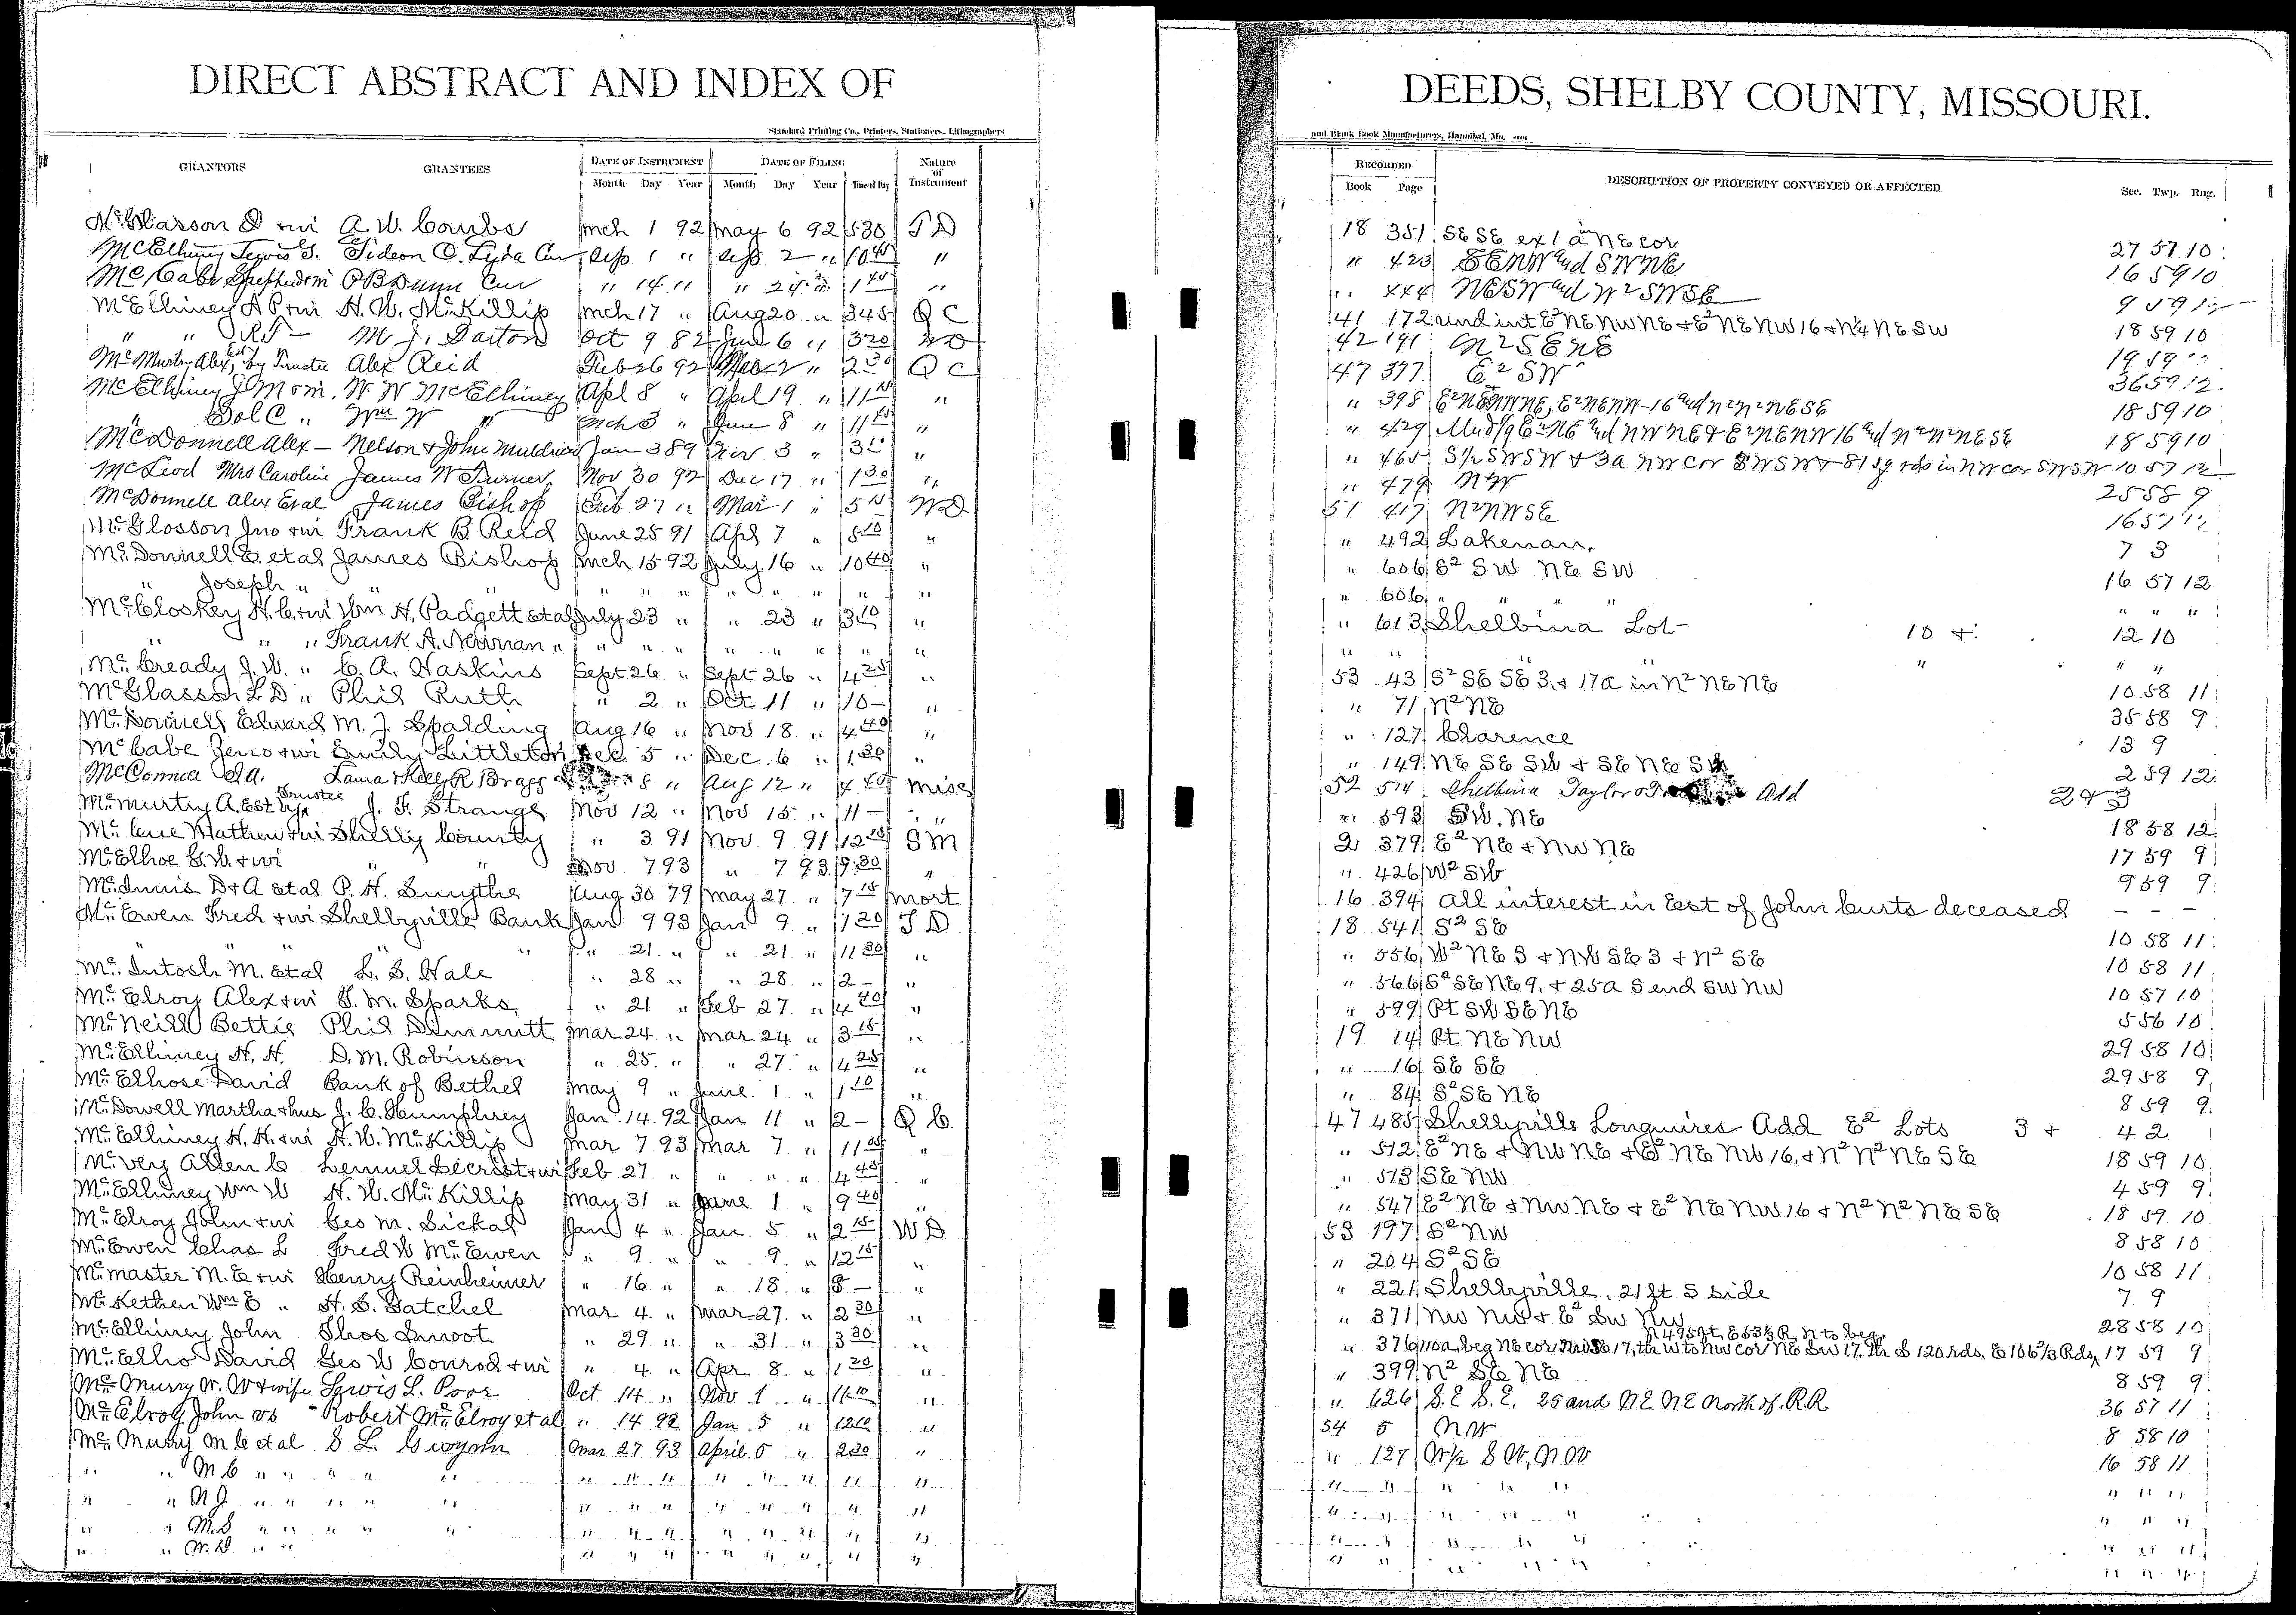 DIRECT ABSTRACT AND INDEX OF
Standard Printing Co., Printers, Stationers, Lithographers
GRANTORS GRANTEES DATE OF INSTRUMENT DATE OF FILING Nature of Instrument
Month Day Year Month Day Year Time of Day
McGlasson D + wi A. W. Combs Mch 1 92 May 6 92 530 T D
McElhiney Lewis G. Gideon O. Lyda Cur Sep. 1 " Sep 2 " 10 45 "
McCabe P B Dunn Cur " 14 " " 24 " 1 40 "
McElhiney A P + wi H. W. McKillip Mch 17 " Aug 20 " 345 Q C
" " M. J. Darton Oct 9 82 June 6 " 320 W D
McMurtry Alex, Est by Trustee Alex Reid Feb 26 92 " 2 30 Q C
McElhiney J M + wi. W W McElhiney Apl 8 " April 19 " 11 15 "
" Sol C " Wm W " Mch 3 " June 8 " 11 45 "
McDonnell Alex — Nelson + John Jan 3 89 Nov 3 " "
McLeod Mrs Caroline James W Turner Nov 30 92 Dec 17 " 1 30 "
McDonnell Alex Etal James Bishop Feb 27 " Mar 1 " 5 15 WD
McGlosson Jno + wi Frank B Reid June 25 91 Apl 7 " 5 10 "
McDonnell E. etal James Bishop Mch 15 92 July 16 " 10 40 "
" Joseph " " " " " " " " " " "
McCloskey H. C. + wi Wm H. Padgett etal July 23 " " 23 " 3 10 "
" " " Frank A. Newman " " " " " " " " "
McCready J. W. " C. A. Haskins Sept 26 " Sept 26 " 4 25 "
McGlasson L D " Phil Ruth " 2 " Oct 11 " 10 - "
McDonnell Edward M. J. Spalding Aug 16 " Nov 18 " 4 40 "
McCabe Zeno + wi Emily Littleton Dec 5 " Dec. 6 " 1 30 "
McConnell S A. Laura + Kelly R Bragg 8 " Aug 12 " 4 40 Misc
McMurtry A. Est by Trustee J. F. Strange Nov 12 " Nov 15 " 11 - "
McCue Mathew + wi Shelby County " 3 91 Nov 9 91 12 15 S M
McElhoe G. W. + wi " " Nov 7 93 " 7 93 9 30 "
McInnis D + A etal P. H. Smythe Aug 30 79 May 27 " 7 15 Mort
McEwen Fred + wi Shelbyville Bank Jan 9 93 Jan 9 " 1 20 T D
" " " " " " 21 " " 21 " 11 30 "
McIntosh M. etal L. S. Hale " 28 " " 28 " 2 - "
McElroy Alex + wi T. M. Sparks " 21 " Feb 27 " 4 40 "
McNeill Bettie Phil Dimmitt Mar 24 " Mar 24 " 3 15 "
McElhiney H. H. D. M. Robinson " 25 " " 27 " 4 25 "
McElhose David Bank of Bethel May 9 " June 1 " 1 10 "
McDowell Martha + hus J. C. Humphrey Jan 14 92 Jan 11 " 2 - Q C
McElhiney H. H. + wi H. W. McKillip Mar 7 93 Mar 7 " 11 05 "
McVey Allen C Lemuel Secrist + wi Feb 27 " " " " 4 45 "
McElhiney Wm W H. W. McKillip May 31 " June 1 " 9 40 "
McElroy John + wi Geo M. Sickal Jan 4 " Jan 5 " 2 15 W D
McEwen Chas L Fred W McEwen " 9 " " 9 " 12 15 "
McMaster M. E + wi Henry Reinheimer " 16 " " 18 " 8 - "
McKethen Wm E " H. S. Gatchel Mar 4 " Mar 27 " 2 30 "
McElhiney John Thos Smoot " 29 " " 31 " 3 30 "
McElho David Geo W Conrod + wi " 4 " Apr. 8 " 1 20 "
McMurry W. W + wife Lewis L. Poor Oct 14 " Nov 1 " 11 10 "
McElroy John vs Robert McElroy et al " 14 92 Jan. 5 " 12 10 "
McMurry M C et al S L Gwynn Mar 27 93 April 5 " 2 30 "
" " M C " " " " " " " " " " " " "
" " N J " " " " " " " " " " " " "
" " M. S. " " " " " " " " " " " " "
" " W. D. " " " " " " " " " "
DEEDS, SHELBY COUNTY, MISSOURI.
and Blank Book Manufacturers, Hannibal, Mo.
RECORDED DESCRIPTION OF PROPERTY CONVEYED OR AFFECTED Sec. Twp. Rng.
Book Page
18 351 SE SE ex 1 a in NE cor 27 57 10
" 423 SENW and SWNE 16 59 10
" 444 NESW and W2 SWSE 9 59 12
41 172 und int E2 NE NW NE + E2 NE NW 16 + N4 NE SW 18 59 10
42 191 N2 SENE 19 59
47 377 E2 SW 36 59 12
" 398 E2NENWNE, E2NENW-16 and N2N2NESE 18 59 10
" 429 E2NE and NW NE + E2NENW 16 and N2N2NESE 18 59 10
" 465 S1/2 SWSW + 3a NW cor SWSW + 81 sq rds in NW cor SWSW 10 57 12
" 479 NW 25 58 9
51 417 N2NWSE 16 57 12
" 492 Lakenan, 7 3
" 606 S2 SW NE SW 16 57 12
" 606 " " " " " "
" 613 Shelbina Lot 10 + 12 10
" " " " " " "
53 43 S2 SE SE 3, + 17a in N2 NE NE 10 58 11
" 71 N2 NE 35 58 9
" 127 Clarence 13 9
" 149 NE SE SW + SE NE SW 2 59 12
52 514 Shelbina Taylor Add 2 + 3
" 593 SW. NE 18 58 12
2 379 E2 NE + NW NE 17 59 9
" 426 W2 SW 9 59 9
16 394 All interest in Est of John Curts deceased - - -
18 541 S2 SE 10 58 11
" 556 W2 NE 3 + NW SE 3 + N2 SE 10 58 11
" 566 S2 SE NE 9, + 25a S end SW NW 10 57 10
" 599 Pt SW SE NE 5 56 10
19 14 Pt NE NW 29 58 10
" 16 SE SE 29 58 9
" 84 S2 SE NE 8 59 9
47 485 Shelbyville Longmires Add E2 Lots 3 + 4 2
" 512 E2 NE + NW NE + E2 NE NW 16, + N2 N2 NE SE 18 59 10
" 513 SE NW 4 59 9
" 547 E2 NE + NW NE + E2 NE NW 16 + N2 N2 NE SE 18 59 10
53 197 S2 NW 8 58 10
" 204 S2 SE 10 58 11
" 221 Shelbyville, 21 ft S side 7 9
" 371 NW NW + E2 SW NW 28 58 10
N 495 ft, E 53 1/3 R, N to beg
" 376 110a beg NE cor NWSE 17, th W to NW cor NE SW 17, th S 120 rds, E 106 2/3 Rds, 17 59 9
" 399 N2 SE NE 8 59 9
" 626 S. E S. E. 25 and N E NE north of R.R 36 57 11
54 5 NW 8 58 10
" 127 W1/2 S W, N W 16 58 11
" " " " " " " "
" " " " " " " "
" " " " " " "
" " " " " " "